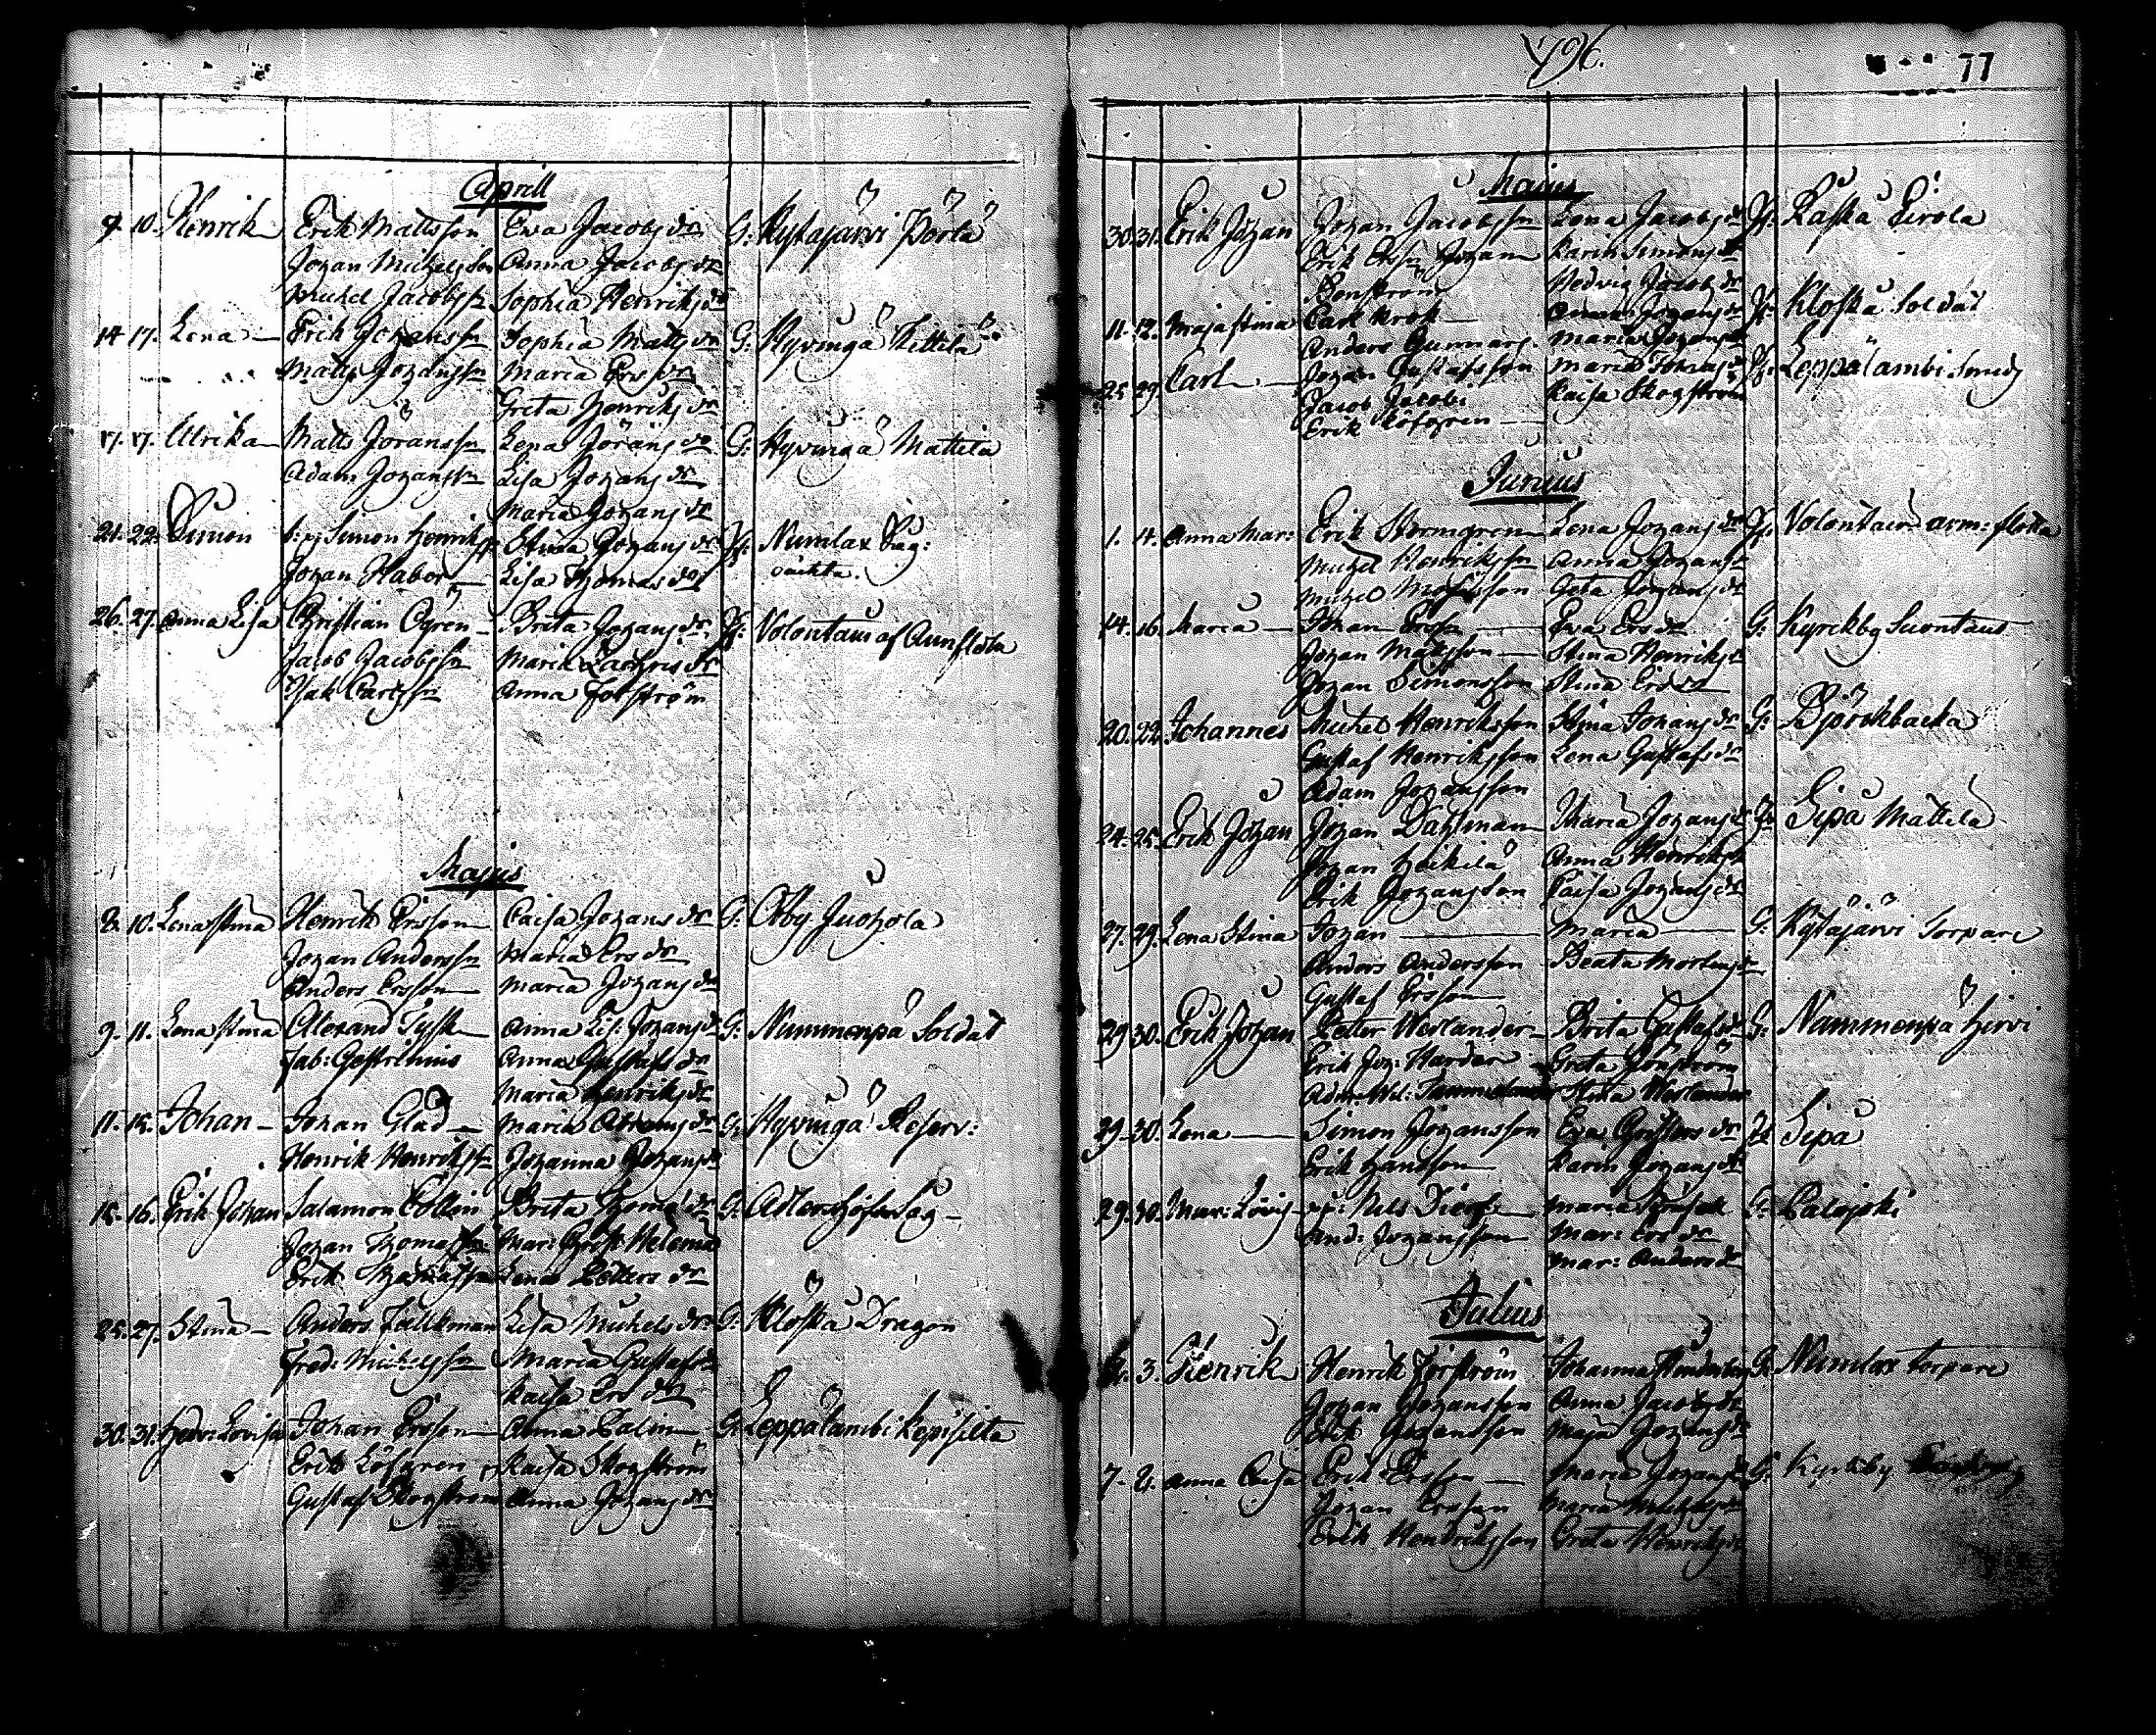 Aprill
9. 10. Henrik Erik Mattsson Eva Jacobs dr G: Kytäjärvi Pörlä
Johan Michelsson Anna Jacobs dr
Michel Jacobsson Sophia Henriks dr
14 17. Lena — Erik Johansson Sophia Matts dr G: Hyvingä Kittilä
Matts Johansson Maria Ers dr
Greta Henriks dr
17. 17. Ulrika Matts Jöransson Lena Jörans dr G: Hyvingä Mattila
Adam Johansson Lisa Johans dr
Maria Johans dr
21. 22. Simon Simon Henriksson Stina Johans dr Numlax
Johan Habor — Lisa Thomas dr
26. 27. Anna Lisa Christian Ögren — Brita Johans dr Volontair af Arm flotn
Jacob Jacobsson Maria dr
Isak Carlsson Anna Forström
Majus
8. 10. Lena Stina Henrik Ersson Caisa Johans dr G: Åby Juohola
Johan Andersson Maria Ers dr
Anders Ersson Maria Johans dr
9. 11. Lena Stina Alexand Tysk Anna Lis: Johans dr G: Nummenpä Soldat
Fab: Gestrinius Anna Gustafs dr
Maria Henriks dr
11. 15. Johan — Johan Glad — Maria dr G: Hyvingä Reserv:
Henrik Henriksson Johanna Johans dr
15. 16. Erik Johan Salamon Collin Brita Thoma dr G: Adlershofs Sag —
Johan Thomasson Mar: Christ: Helenia
Erik Lena Petters dr
25. 27. Stina — Anders Fällkman Lisa Michels dr G: Kloska Dragon
Fred: Michelsson Maria Gustafs dr
Kaisa Ers dr
30. 31. Hedv: Lovisa Johan Ersson Anna Calin G: Leppälambi Kepisilta
Erik Löfgren Kaisa Skogström
Gustaf Skogström Anna Johans dr
1796. 77
Majus
30. 31. Erik Johan Johan Jacobsson Lena Jacobs dr Kaska Pirola
Erik Ersson Johan Karin Simons dr
Benström Hedvig Jacobs dr
11. 12. Maja Stina Carl Krok — Anna Johans dr Kloska Soldat
Anders Gunnars. Maria Johans dr
25 29. Carl — Johan Gustafsson Maria Thomas dr Leppälambi Smed
Jacob Jacobs Kaisa Skogström
Erik Löfgren —
Junius
1. 4. Anna Mar: Erik Stormgren Lena Johans dr Volontair arm: flotta
Michel Henriksson Anna Johans dr
Michel Greta Johans dr
14. 16. Maria — Johan Ersson — Eva Ers dr G: Kyrckby Suontaus
Johan Mattsson — Stina Henriks dr
Johan Simonsson Stina Ers dr
20. 22. Johannes Michel Henriksson Stina Johans dr G: Björckbacka
Gustaf Henriksson Lena Gustafs dr
Adam Johansson
24. 25. Erik Johan Johan Dahlman Maria Johans dr Gipa Mattila
Johan Heikilä Anna Henriks dr
Erik Johansson Caisa Johans dr
27. 29. Lena Stina Johan — Maria — G: Kytäjärvi Torpare
Anders Andersson Beata Mortens dr
Gustaf Ersson
29 30. Erik Johan Petter Weslander — Brita Gustafs dr G: Nummenpä Hirvi
Erik Joh: Harder Greta Jonström
Adm: Wil: Stina Weslander
29. 30. Lena — Simon Johansson Eva Christers dr Gipa
Erik Hansson Karin Johans dr
29. 30. Mar: Lovis Nils Maria G: Palojoki
And: Johansson Mar: Ers dr
Mar: Anders dr
Julius
2. 3. Henrik Henrik Forström Johanna G: Numlax Torpare
Johan Johansson Anna Jacobs dr
Erik Johansson Maja Johans dr
7. Anna Caisa Erik Ersson — Maria Johans dr G: Kyrkby
Johan Ersson Maria Michels dr
Erik Henriksson Greta Henriks dr